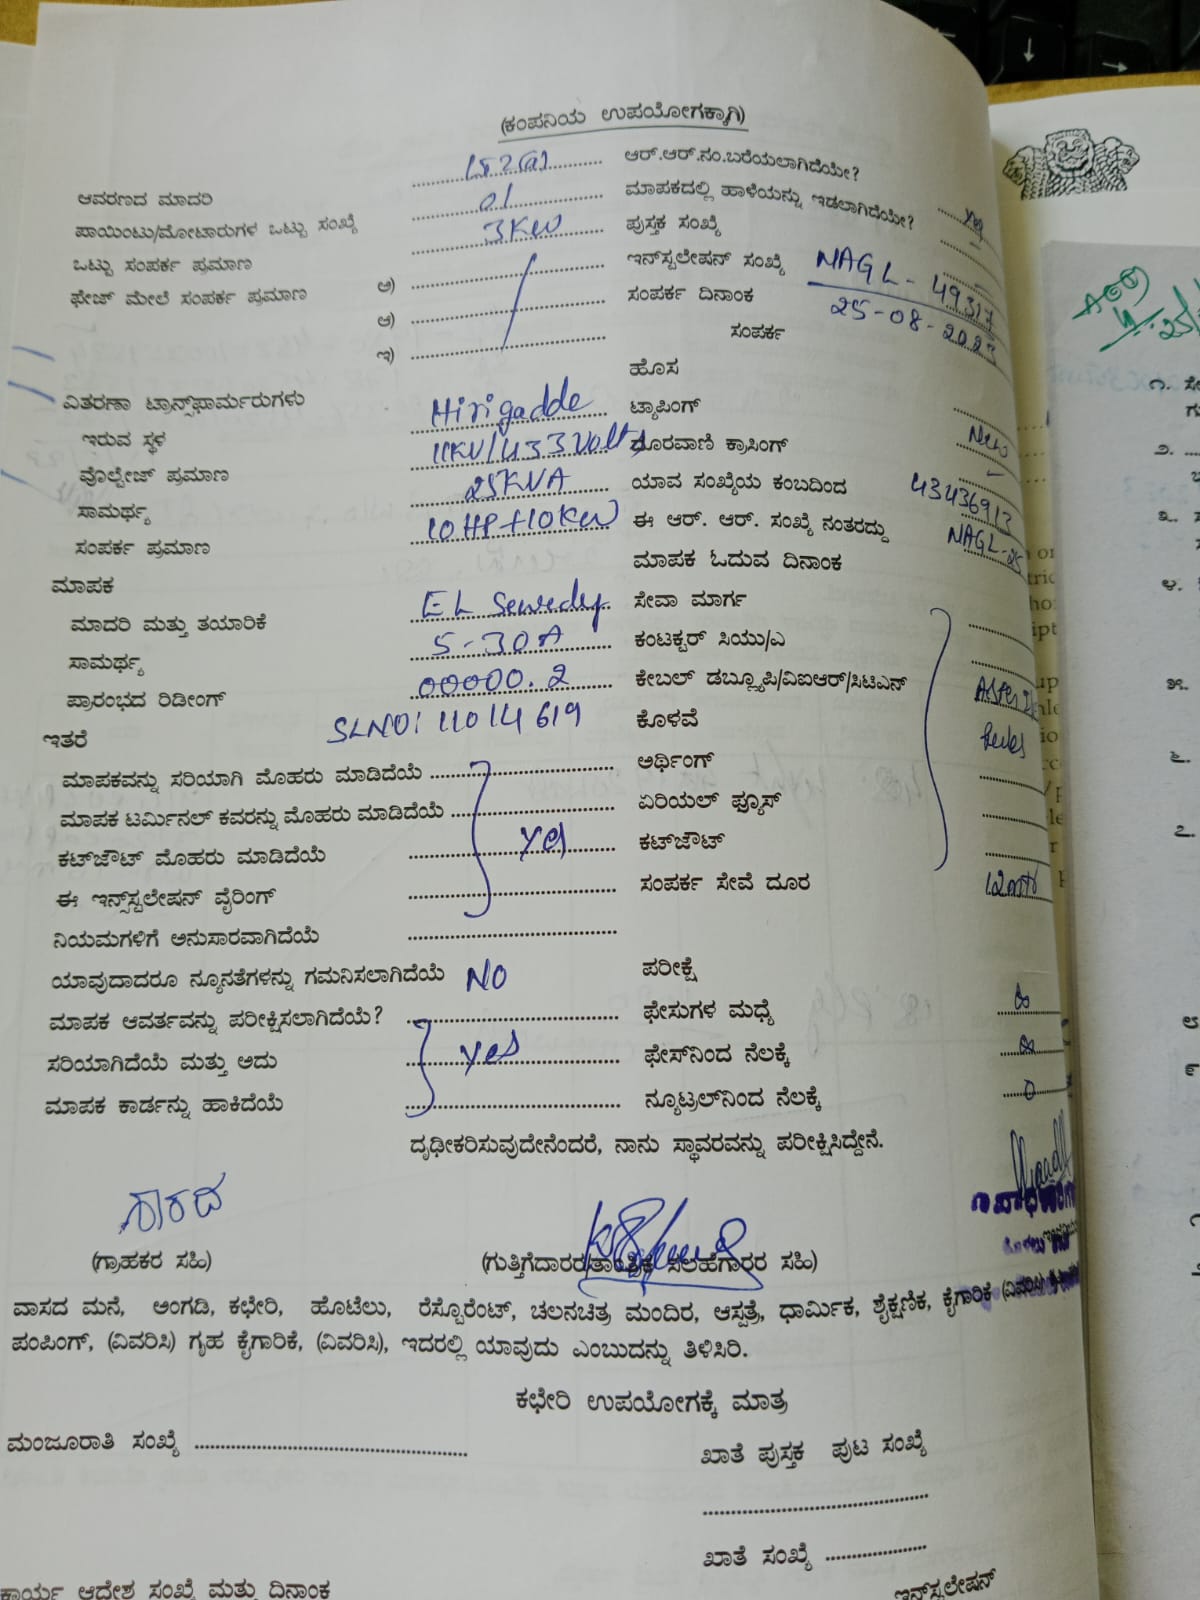 (ಕಂಪನಿಯ ಉಪಯೋಗಕ್ಕಾಗಿ)
ಆವರಣದ ಮಾದರಿ
ಆರ್.ಆರ್.ನಂ.ಬರೆಯಲಾಗಿದೆಯೇ?
ಪಾಯಿಂಟು/ಮೋಟಾರುಗಳ ಒಟ್ಟು ಸಂಖ್ಯೆ 01
ಮಾಪಕದಲ್ಲಿ ಹಾಳೆಯನ್ನು ಇಡಲಾಗಿದೆಯೇ? Yes
ಒಟ್ಟು ಸಂಪರ್ಕ ಪ್ರಮಾಣ 3KW
ಪುಸ್ತಕ ಸಂಖ್ಯೆ
ಫೇಜ್ ಮೇಲೆ ಸಂಪರ್ಕ ಪ್ರಮಾಣ ಅ)
ಇನ್‌ಸ್ಟಲೇಷನ್ ಸಂಖ್ಯೆ NAGL-49317
ಆ)
ಸಂಪರ್ಕ ದಿನಾಂಕ 25-08-2023
ಇ)
ಸಂಪರ್ಕ
ಹೊಸ
ವಿತರಣಾ ಟ್ರಾನ್ಸ್‌ಫಾರ್ಮರುಗಳು
ಇರುವ ಸ್ಥಳ Hirigadde
ಟ್ಯಾಪಿಂಗ್ New
ವೊಲ್ಟೇಜ್ ಪ್ರಮಾಣ 11KV/433Volts
ದೂರವಾಣಿ ಕ್ರಾಸಿಂಗ್
ಸಾಮರ್ಥ್ಯ 25KVA
ಯಾವ ಸಂಖ್ಯೆಯ ಕಂಬದಿಂದ 43436913
ಸಂಪರ್ಕ ಪ್ರಮಾಣ 10HP+10KW
ಈ ಆರ್. ಆರ್. ಸಂಖ್ಯೆ ನಂತರದ್ದು NAGL-25
ಮಾಪಕ
ಮಾಪಕ ಓದುವ ದಿನಾಂಕ
ಮಾದರಿ ಮತ್ತು ತಯಾರಿಕೆ EL Sewedy
ಸೇವಾ ಮಾರ್ಗ
ಸಾಮರ್ಥ್ಯ 5-30A
ಕಂಟಕ್ಟರ್ ಸಿಯು/ಎ
ಪ್ರಾರಂಭದ ರಿಡೀಂಗ್ 00000.2
ಕೇಬಲ್ ಡಬ್ಲ್ಯೂಪಿ/ವಿಐಆರ್/ಸಿಟಿಎನ್
ಇತರೆ SLNO: 11014619
ಕೊಳವೆ
ಮಾಪಕವನ್ನು ಸರಿಯಾಗಿ ಮೊಹರು ಮಾಡಿದೆಯೆ
ಅರ್ಥಿಂಗ್
ಮಾಪಕ ಟರ್ಮಿನಲ್ ಕವರನ್ನು ಮೊಹರು ಮಾಡಿದೆಯೆ
ಏರಿಯಲ್ ಫ್ಯೂಸ್
ಕಟ್‌ಜೌಟ್ ಮೊಹರು ಮಾಡಿದೆಯೆ Yes
ಕಟ್‌ಜೌಟ್
ಈ ಇನ್ಸ್‌ಸ್ಟಲೇಷನ್ ವೈರಿಂಗ್
ಸಂಪರ್ಕ ಸೇವೆ ದೂರ
ನಿಯಮಗಳಿಗೆ ಅನುಸಾರವಾಗಿದೆಯೆ
ಯಾವುದಾದರೂ ನ್ಯೂನತೆಗಳನ್ನು ಗಮನಿಸಲಾಗಿದೆಯೆ NO
ಪರೀಕ್ಷೆ
ಮಾಪಕ ಆವರ್ತವನ್ನು ಪರೀಕ್ಷಿಸಲಾಗಿದೆಯೆ?
ಫೇಸುಗಳ ಮಧ್ಯೆ ∞
ಸರಿಯಾಗಿದೆಯೆ ಮತ್ತು ಅದು Yes
ಫೇಸ್‌ನಿಂದ ನೆಲಕ್ಕೆ ∞
ಮಾಪಕ ಕಾರ್ಡನ್ನು ಹಾಕಿದೆಯೆ
ನ್ಯೂಟ್ರಲ್‌ನಿಂದ ನೆಲಕ್ಕೆ 0
ದೃಢೀಕರಿಸುವುದೇನೆಂದರೆ, ನಾನು ಸ್ಥಾವರವನ್ನು ಪರೀಕ್ಷಿಸಿದ್ದೇನೆ.
ಶಾರದ
(ಗ್ರಾಹಕರ ಸಹಿ)
(ಗುತ್ತಿಗೆದಾರರ/ತಾಂತ್ರಿಕ ಸಲಹೆಗಾರರ ಸಹಿ)
ವಾಸದ ಮನೆ, ಅಂಗಡಿ, ಕಛೇರಿ, ಹೊಟೆಲು, ರೆಸ್ಟೊರೆಂಟ್, ಚಲನಚಿತ್ರ ಮಂದಿರ, ಆಸ್ಪತ್ರೆ, ಧಾರ್ಮಿಕ, ಶೈಕ್ಷಣಿಕ, ಕೈಗಾರಿಕೆ (ವಿವರಿಸಿ)
ಪಂಪಿಂಗ್, (ವಿವರಿಸಿ) ಗೃಹ ಕೈಗಾರಿಕೆ, (ವಿವರಿಸಿ), ಇದರಲ್ಲಿ ಯಾವುದು ಎಂಬುದನ್ನು ತಿಳಿಸಿರಿ.
ಕಛೇರಿ ಉಪಯೋಗಕ್ಕೆ ಮಾತ್ರ
ಮಂಜೂರಾತಿ ಸಂಖ್ಯೆ
ಖಾತೆ ಪುಸ್ತಕ ಪುಟ ಸಂಖ್ಯೆ
ಖಾತೆ ಸಂಖ್ಯೆ
ಕಾರ್ಯ ಆದೇಶ ಸಂಖ್ಯೆ ಮತ್ತು ದಿನಾಂಕ
ಇನ್‌ಸ್ಟಲೇಷನ್